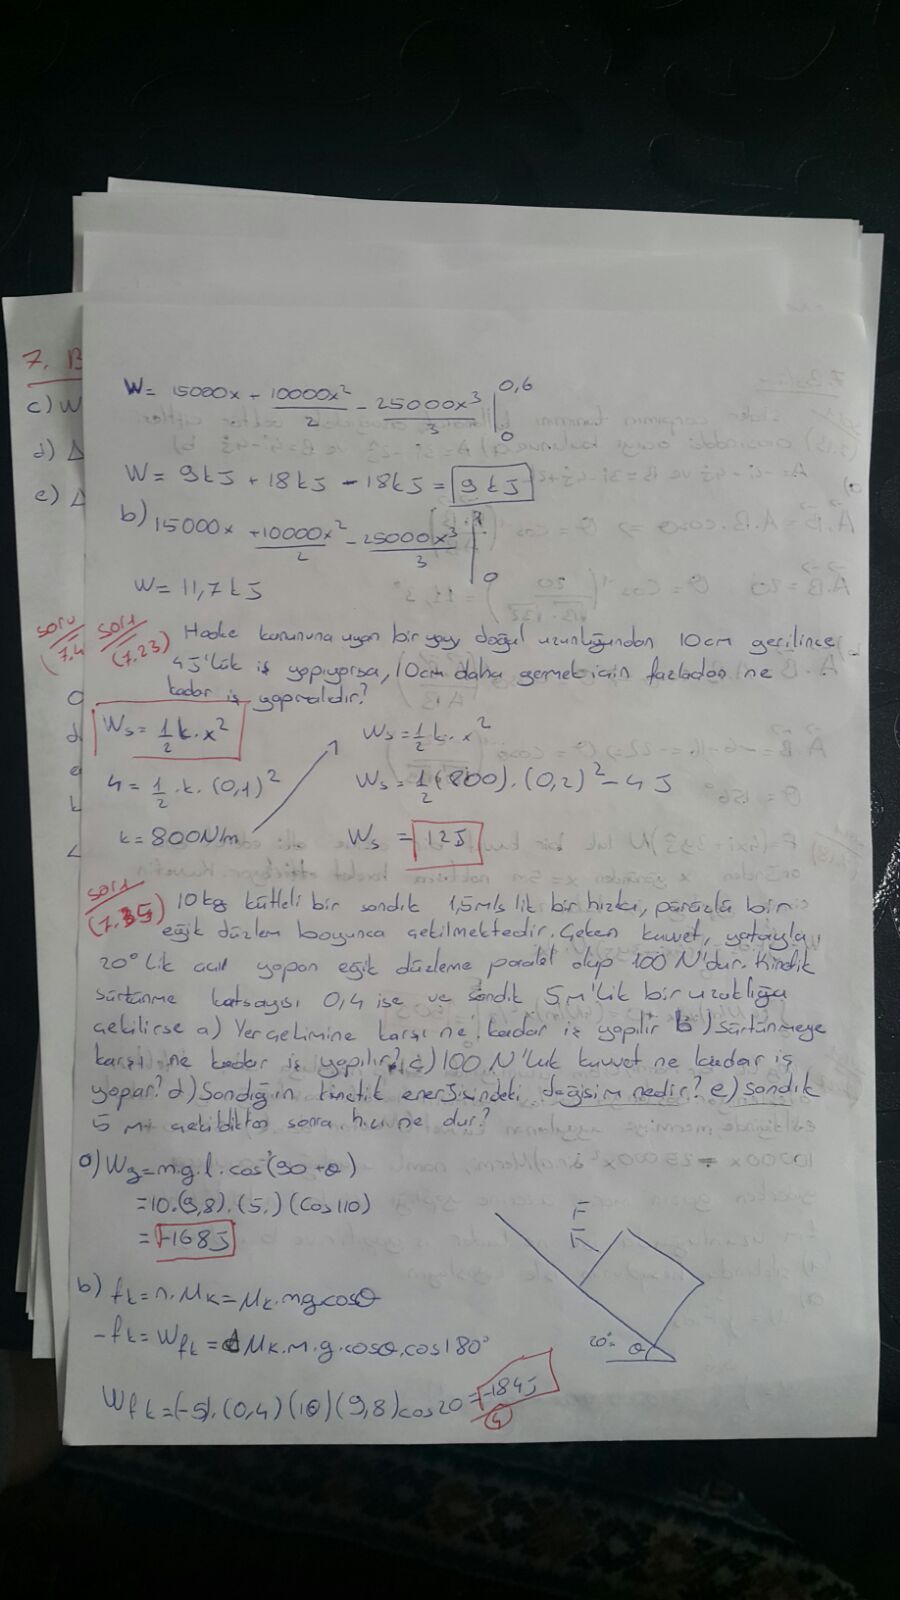 7. B
c) W
d) Δ
e) Δ
W= 15000x + 10000x²/2 - 25000x³/3 |₀^0,6
W = 9kJ + 18kJ - 18kJ = 9kJ
b) 15000x + 10000x²/2 - 25000x³/3 |₀
W= 11,7kJ
soru (7.4
soru (7.23) Hooke kanununa uyan bir yay doğal uzunluğundan 10cm gerilince
4J'lük iş yapıyorsa, 10cm daha germek için fazladan ne
kadar iş yapmalıdır?
Ws = 1/2 k. x²
Ws = 1/2 k. x²
4 = 1/2 .k. (0,1)²
Ws = 1/2 (800). (0,2)² - 4J
k = 800N/m
Ws = 12J
soru (7.35) 10kg kütleli bir sandık 1,5m/s lik bir hızla, pürüzlü bir
eğik düzlem boyunca çekilmektedir. Çeken kuvvet, yatayla
20° lik açı yapan eğik düzleme paralel olup 100 N'dur. Kinetik
sürtünme katsayısı 0,4 ise ve sandık 5m'lik bir uzaklığa
çekilirse a) Yerçekimine karşı ne kadar iş yapılır b) Sürtünmeye
karşı ne kadar iş yapılır? c) 100 N'luk kuvvet ne kadar iş
yapar? d) Sandığın kinetik enerjisindeki değişim nedir? e) Sandık
5 m çekildikten sonra hızı ne dur?
a) Wg = m.g.l.cos(90+θ)
=10.(9,8).(5.)(cos110)
= -168J
F
b) fk = n.μk = μk.mg.cosθ
-fk = Wfk = μk.m.g.cosθ.cos180°
20° θ
Wfk = (-5).(0,4)(10)(9,8)cos20 = -184J